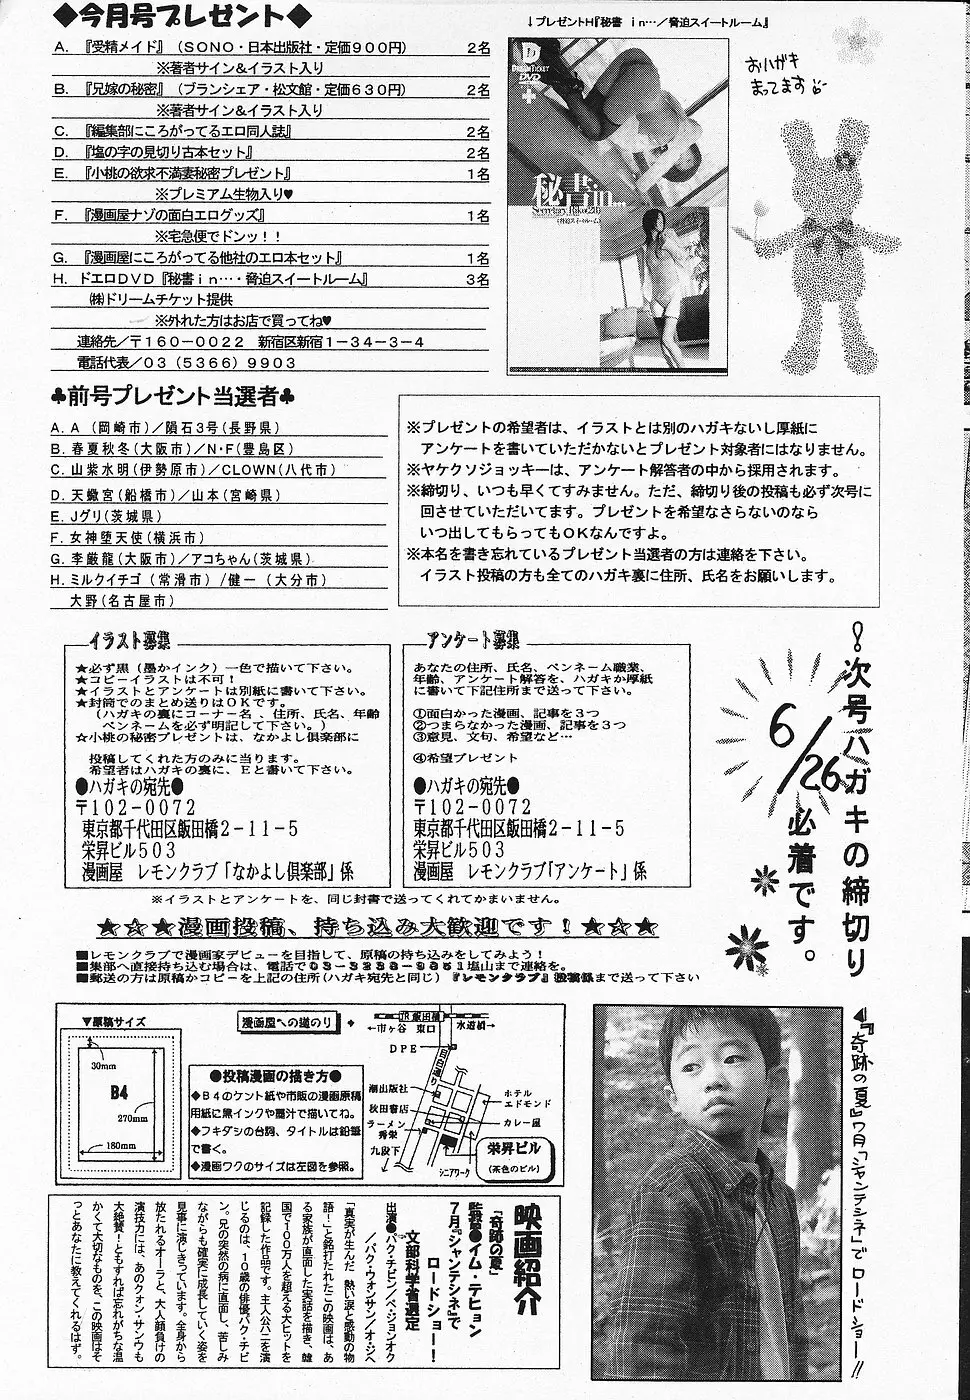 ◆今月号プレゼント◆
A. 『受精メイド』（SONO・日本出版社・定価900円） 2名
※著者サイン&イラスト入り
B. 『兄嫁の秘密』（ブランシェア・松文館・定価630円） 2名
※著者サイン&イラスト入り
C. 『編集部にころがってるエロ同人誌』 2名
D. 『塩の字の見切り古本セット』 2名
E. 『小桃の欲求不満妻秘密プレゼント』 1名
※プレミアム生物入り♥
F. 『漫画屋ナゾの面白エログッズ』 1名
※宅急便でドンッ！！
G. 『漫画屋にころがってる他社のエロ本セット』 1名
H. ドエロDVD『秘書in…・脅迫スイートルーム』 3名
㈱ドリームチケット提供
※外れた方はお店で買ってね♥
連絡先／〒160－0022 新宿区新宿1－34－3－4
電話代表／03（5366）9903
↓プレゼントH『秘書 in…／脅迫スイートルーム』
D
DREAM TICKET
DVD
秘書in...
Secretary Riko(28)
(脅迫スイートルーム)
おハガキ
まってます
♣前号プレゼント当選者♣
A. A （岡崎市）／隕石3号(長野県)
B. 春夏秋冬(大阪市)／N・F(豊島区)
C. 山紫水明(伊勢原市)／CLOWN(八代市)
D. 天蠍宮(船橋市)／山本(宮崎県)
E. Jグリ(茨城県)
F. 女神堕天使(横浜市)
G. 李厳龍(大阪市)／アコちゃん(茨城県)
H. ミルクイチゴ（常滑市）／健一（大分市）
大野(名古屋市)
※プレゼントの希望者は、イラストとは別のハガキないし厚紙に
アンケートを書いていただかないとプレゼント対象者にはなりません。
※ヤケクソジョッキーは、アンケート解答者の中から採用されます。
※締切り、いつも早くてすみません。ただ、締切り後の投稿も必ず次号に
回させていただいてます。プレゼントを希望なさらないのなら
いつ出してもらってもOKなんですよ。
※本名を書き忘れているプレゼント当選者の方は連絡を下さい。
イラスト投稿の方も全てのハガキ裏に住所、氏名をお願いします。
イラスト募集
★必ず黒（墨かインク）一色で描いて下さい。
★コピーイラストは不可！
★イラストとアンケートは別紙に書いて下さい。
★封筒でのまとめ送りはOKです。
（ハガキの裏にコーナー名 、住所、氏名、年齢
ペンネームを必ず明記して下さい。）
★小桃の秘密プレゼントは、なかよし倶楽部に
投稿してくれた方のみに当ります。
希望者はハガキの裏に、Eと書いて下さい。
●ハガキの宛先●
〒102－0072
東京都千代田区飯田橋2－11－5
栄昇ビル503
漫画屋 レモンクラブ「なかよし倶楽部」係
アンケート募集
あなたの住所、氏名、ペンネーム職業、
年齢、アンケート解答を、ハガキか厚紙
に書いて下記住所まで送って下さい。
①面白かった漫画、記事を3つ
②つまらなかった漫画、記事を3つ
③意見、文句、希望など…
④希望プレゼント
●ハガキの宛先●
〒102－0072
東京都千代田区飯田橋2－11－5
栄昇ビル503
漫画屋 レモンクラブ「アンケート」係
次号ハガキの締切り
6/26
必着です。
※イラストとアンケートを、同じ封書で送ってくれてかまいません。
☆☆★漫画投稿、持ち込み大歓迎です！★☆☆
■レモンクラブで漫画家デビューを目指して、原稿の持ち込みをしてみよう！
■集部へ直接持ち込む場合は、電話で 塩山まで連絡を。
■郵送の方は原稿かコピーを上記の住所(ハガキ宛先と同じ) 『レモンクラブ』 係まで送って下さい
▼原稿サイズ
30mm
B4
270mm
180mm
漫画屋への道のり
●投稿漫画の描き方●
◆B4のケント紙や市販の漫画原稿
用紙に黒インクや墨汁で描いてね。
◆フキダシの台詞、タイトルは鉛筆
で書く。
◆漫画ワクのサイズは左図を参照。
JR飯田橋
←市ヶ谷 東口 水道橋→
DPE
潮出版社
秋田書店
ラーメン
秀栄
九段下
ホテル
エドモンド
カレー屋
栄昇ビル
(茶色のビル)
シニアワーク
映画紹介
「奇跡の夏」
監督●イム・テヒョン
7月『シャンテシネ』で
ロードショー！
文部科学省選定
出演●パク・チビン／ペ・ジョンオク
／パク・ウォンサン／オ・ジヘ
「真実が生んだ、熱い涙と感動の物
語！」と銘打たれたこの映画は、あ
る家族が直面した実話を描き、韓
国で100万人を超える大ヒットを
記録した作品です。主人公ハニを演
じるのは、10歳の俳優パク・チビ
ン。兄の突然の病に直面し、苦しみ
ながらも確実に成長していく姿を
見事に演じきっています。全身から
放たれるオーラと、大人顔負けの
演技力には、あのクォン・サンウも
大絶賛！ともすれば忘れがちな温
かくて大切なものを、この映画はそ
っとあなたに教えてくれるはず。
◀『奇跡の夏』7月「シャンテシネ」でロードショー!!